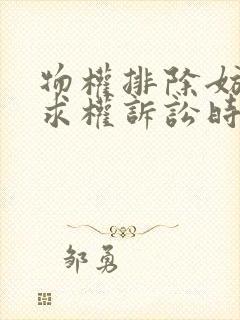 物權排除妨
求權訴訟時
邹勇